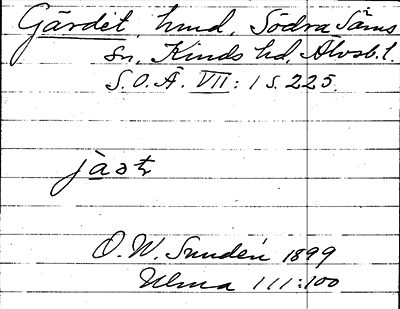 Gärdet, hmd, Södra Säms
sn, Kinds hd, Älvsb. l.
S.O.Ä. VII: 1 s. 225.
O. W. Sundén 1899
Ulma 111:100